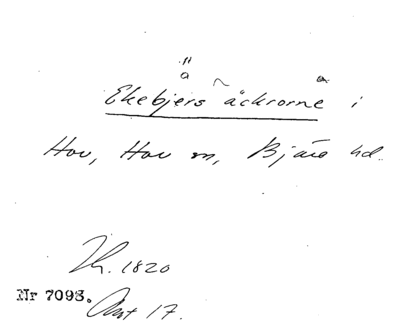 ä
Ekebjers åckrorne i
Hov, Hov sn, Bjäre hd.
1820
Nr 7093.
Avt 17.